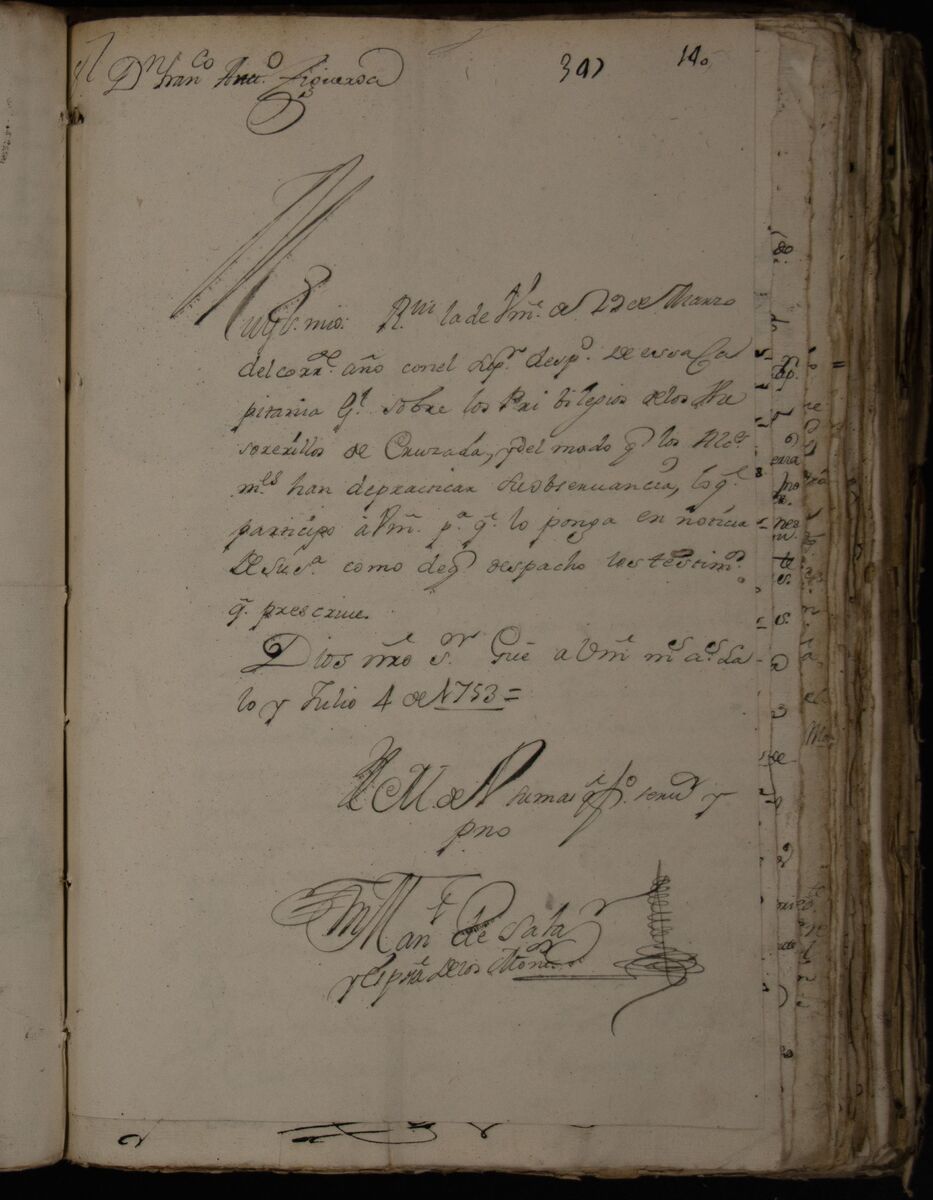 Dn Franco Anto Figueroa
347
140
Muy Sr. mio: Rvi la de Vm. de 22 de Marzo
del corrte. año con el sup.r desp.o De essa Ca
pitania Gl. sobre los Pribilegios de los The
sorerillos de Cruzada, y del modo q los Alc.
mes han de practicar su observancia, lo q.
participo à Vm. pa q. lo ponga en noticia
De su sa. como de q despacho los testim.os
q. prescrive.
Dios nro Sr. Gue a Vm ms as. Sa
lo y Julio 4 de 1753 =
BLM de V su mas servr y
Man de